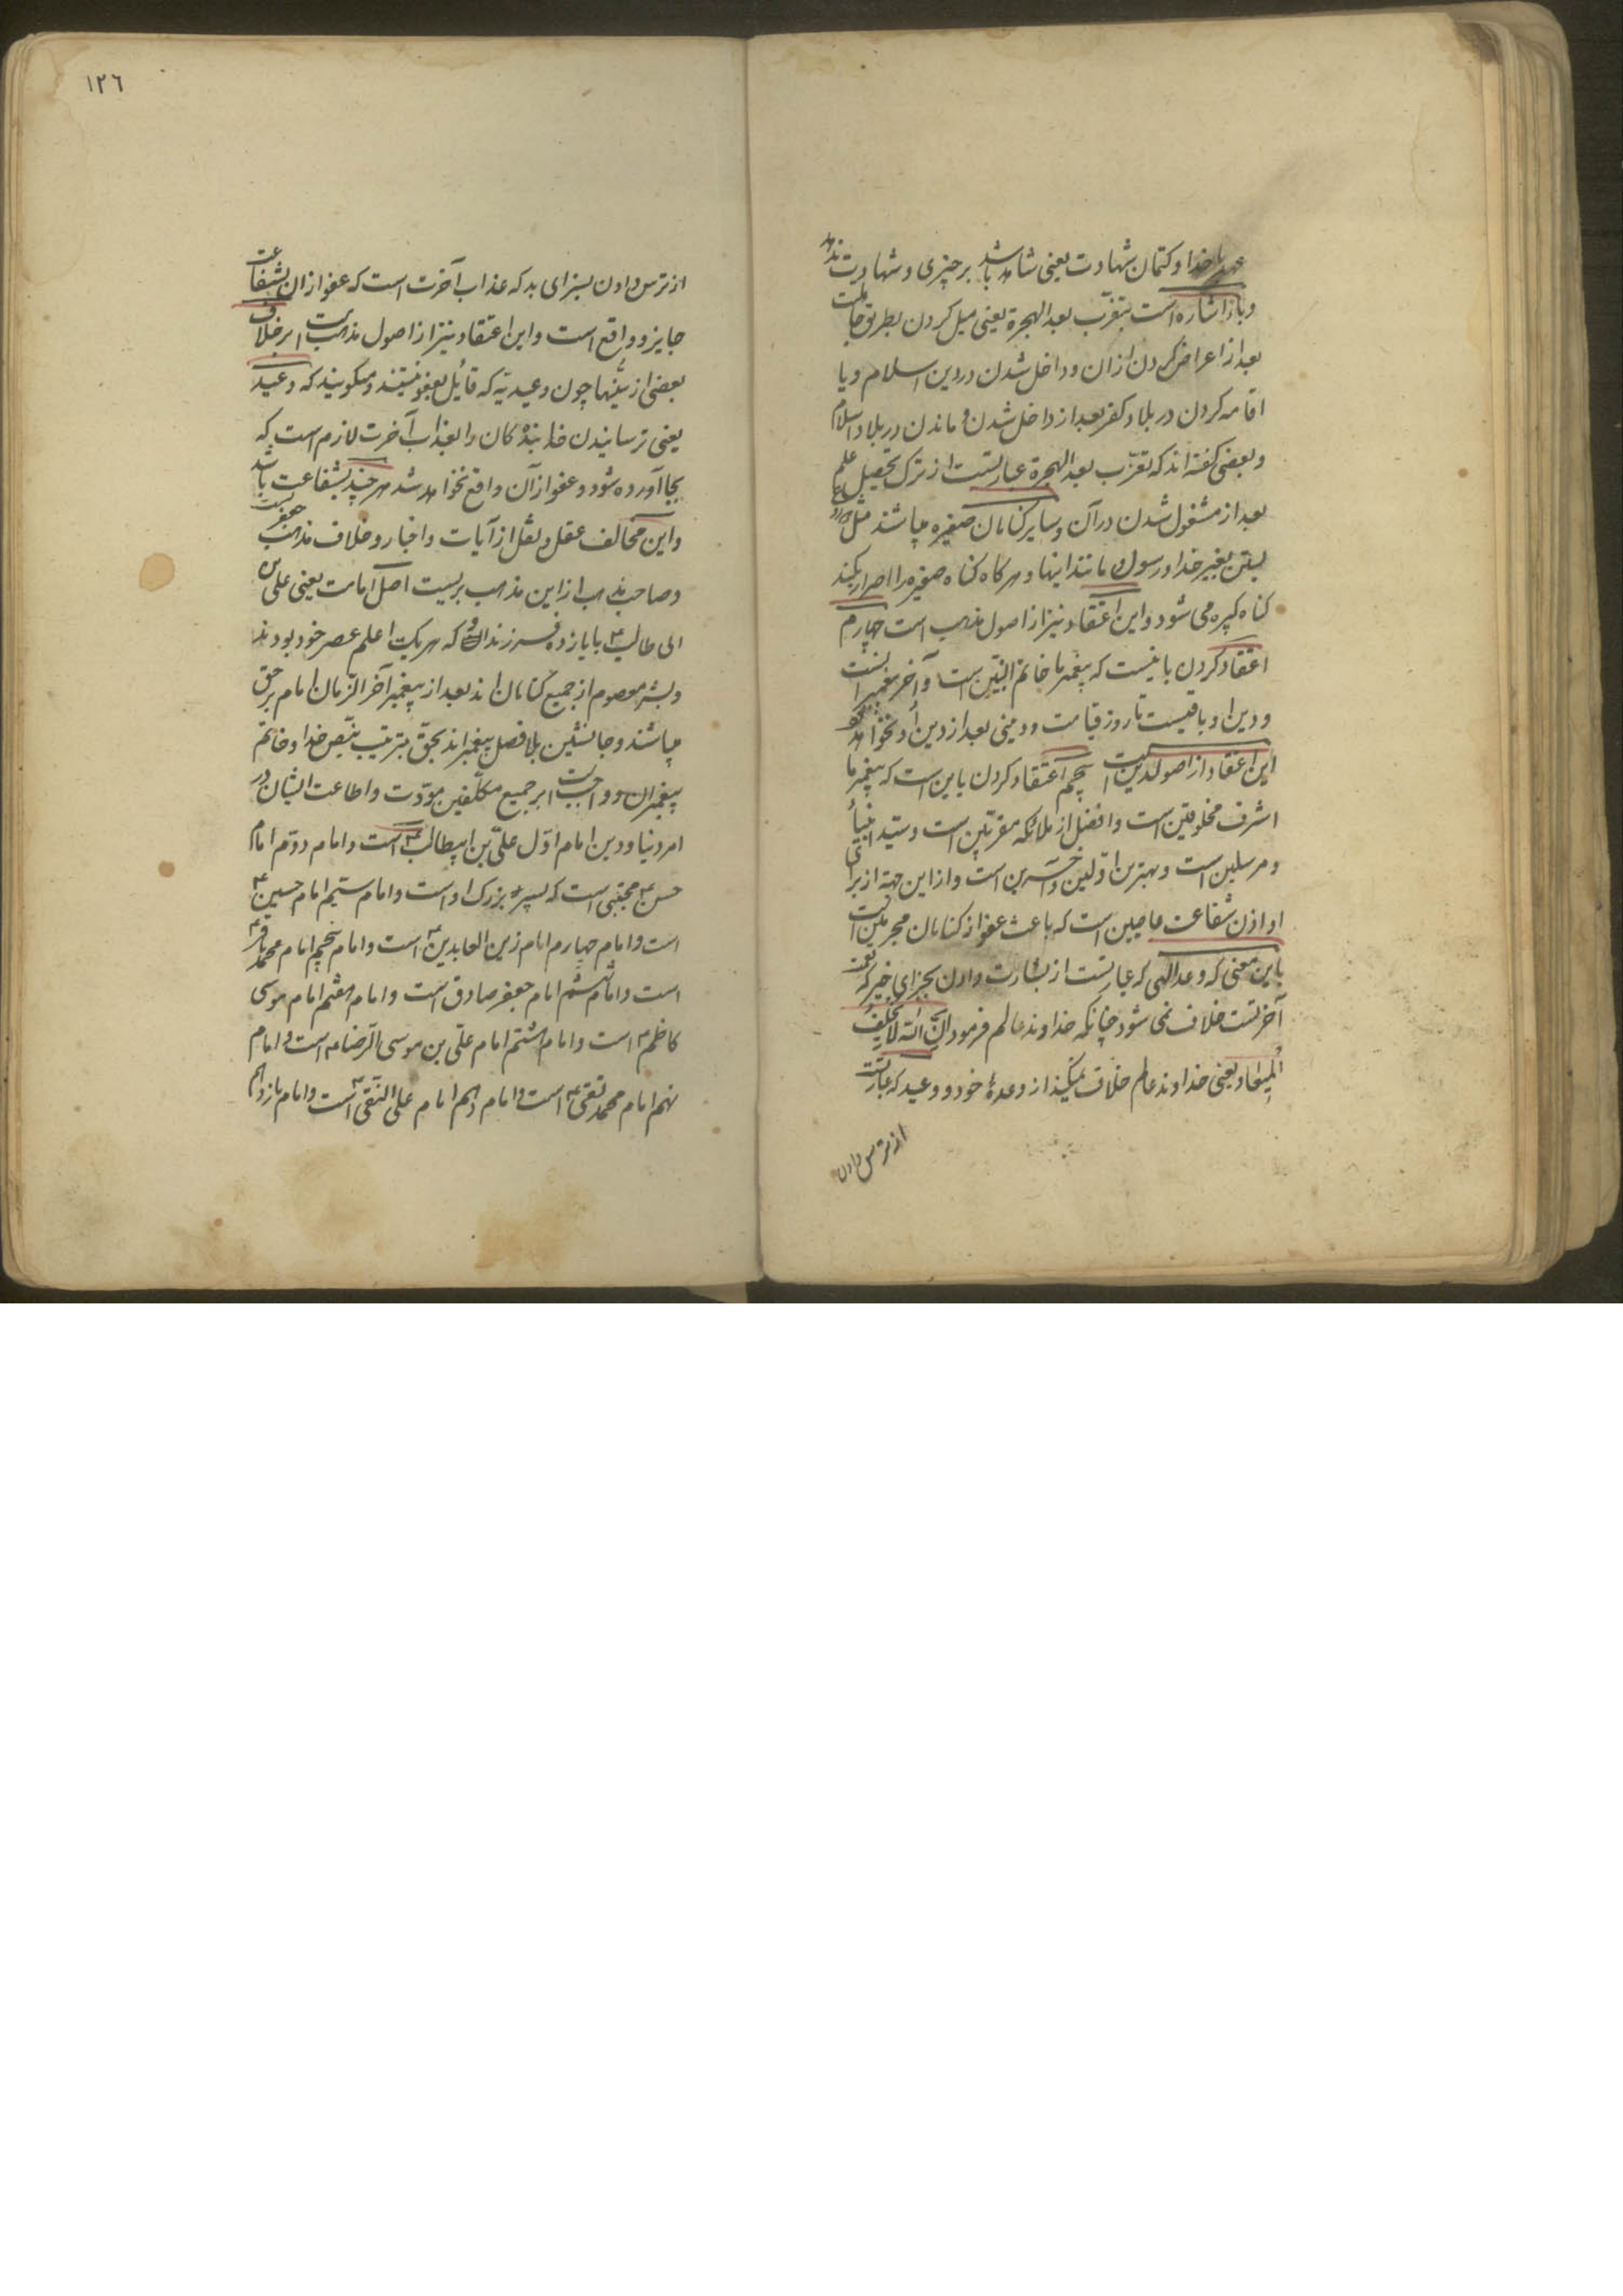 عهد با خدا و کتمان شهادت یعنی شاهد باشد بر چیزی و شهادت ندهد
و باز اشاره است بتعرّب بعد الهجرة یعنی میل کردن بطریق جاهلیت
بعد از اعراض کردن از ان و داخل شدن در دین اسلام و یا
اقامه کردن در بلاد کفر بعد از داخل شدن و ماندن در بلاد اسلام
و بعضی کفته اند که تعرّب بعد الهجرة عبارتست از ترک تحصیل علم
بعد از مشغول شدن در آن و سایر کناهان صغیره میباشند مثل دروغ
بستن بغیر خدا و رسول و مانند اینها و هر کاه کناه صغیره را اصرار بکند
کناه کبیره می شود و این اعتقاد نیز از اصول مذهب است چهارم
اعتقاد کردن باینست که پیغمبر ما خاتم النبیّین است و آخر پیغمبرانست
و دین او باقیست تا روز قیامت و دینی بعد از دین او نخواهد
این اعتقاد از اصول دین است پنجم اعتقاد کردن باین است که پیغمبر ما
اشرف مخلوقین است و افضل از ملائکه مقرّبین است و سیّد انبیاء
و مرسلین است و بهترین اوّلین و آخرین است و از این جهة از برای
او اذن شفاعت عاصین است که باعث عفو از کناهان مجرمین است
باین معنی که وعد الهی که عبارتست از بشارت دادن بجزای خیر که نعمت
آخرتست خلاف نمی شود چنانکه خداوند عالم فرموده انّ الله لا یخلف
المیعاد یعنی خداوند عالم خلاف نمیکند از وعدهٔ خود و وعید که عبارتست
از ترس دادن
١٢٦
از ترس دادن بسزای بد که عذاب آخرت است که عفو از ان بشفاعت
جایز و واقع است و این اعتقاد نیز از اصول مذهب است بر خلاف
بعضی از سنّیها چون وعیدیّه که قایل بعفو نیستند و میکویند که وعید
یعنی ترسانیدن خدا بنده کان را بعذاب آخرت لازم است که
بجا آورده شود و عفو از آن واقع نخواهد شد هر چند بشفاعت باشد
و این مخالف عقل و نقل از آیات و اخبار و خلاف مذهب جعفریست
و صاحب مذهب از این مذهب بریست اصل امامت یعنی علی بن
ابی طالب ع با یازده فرزندان او که هر یک اعلم عصر خود بودند
و بشر معصوم از جمیع کناهان اند بعد از پیغمبر آخر الزمان امام بر حق
میباشند و جانشین بلا فصل پیغمبراند بحق بترتیب بنصّ خدا و خاتم
پیغمبران و واجب است بر جمیع مکلّفین مودّت و اطاعت ایشان در
امر دنیا و دین امام اوّل علیّ بن ابیطالب ع است و امام دوّم امام
حسن ع مجتبی است که پسر بزرک او است و امام سیّم امام حسین ع
است و امام چهارم امام زین العابدین ع است و امام پنجم امام محمد باقر ع
است و امام ششم امام جعفر صادق است و امام هفتم امام موسی
کاظم ع است و امام هشتم امام علیّ بن موسی الرّضا ع است و امام
نهم امام محمد تقی ع است و امام دهم امام علی النّقی ع است و امام یازدهم